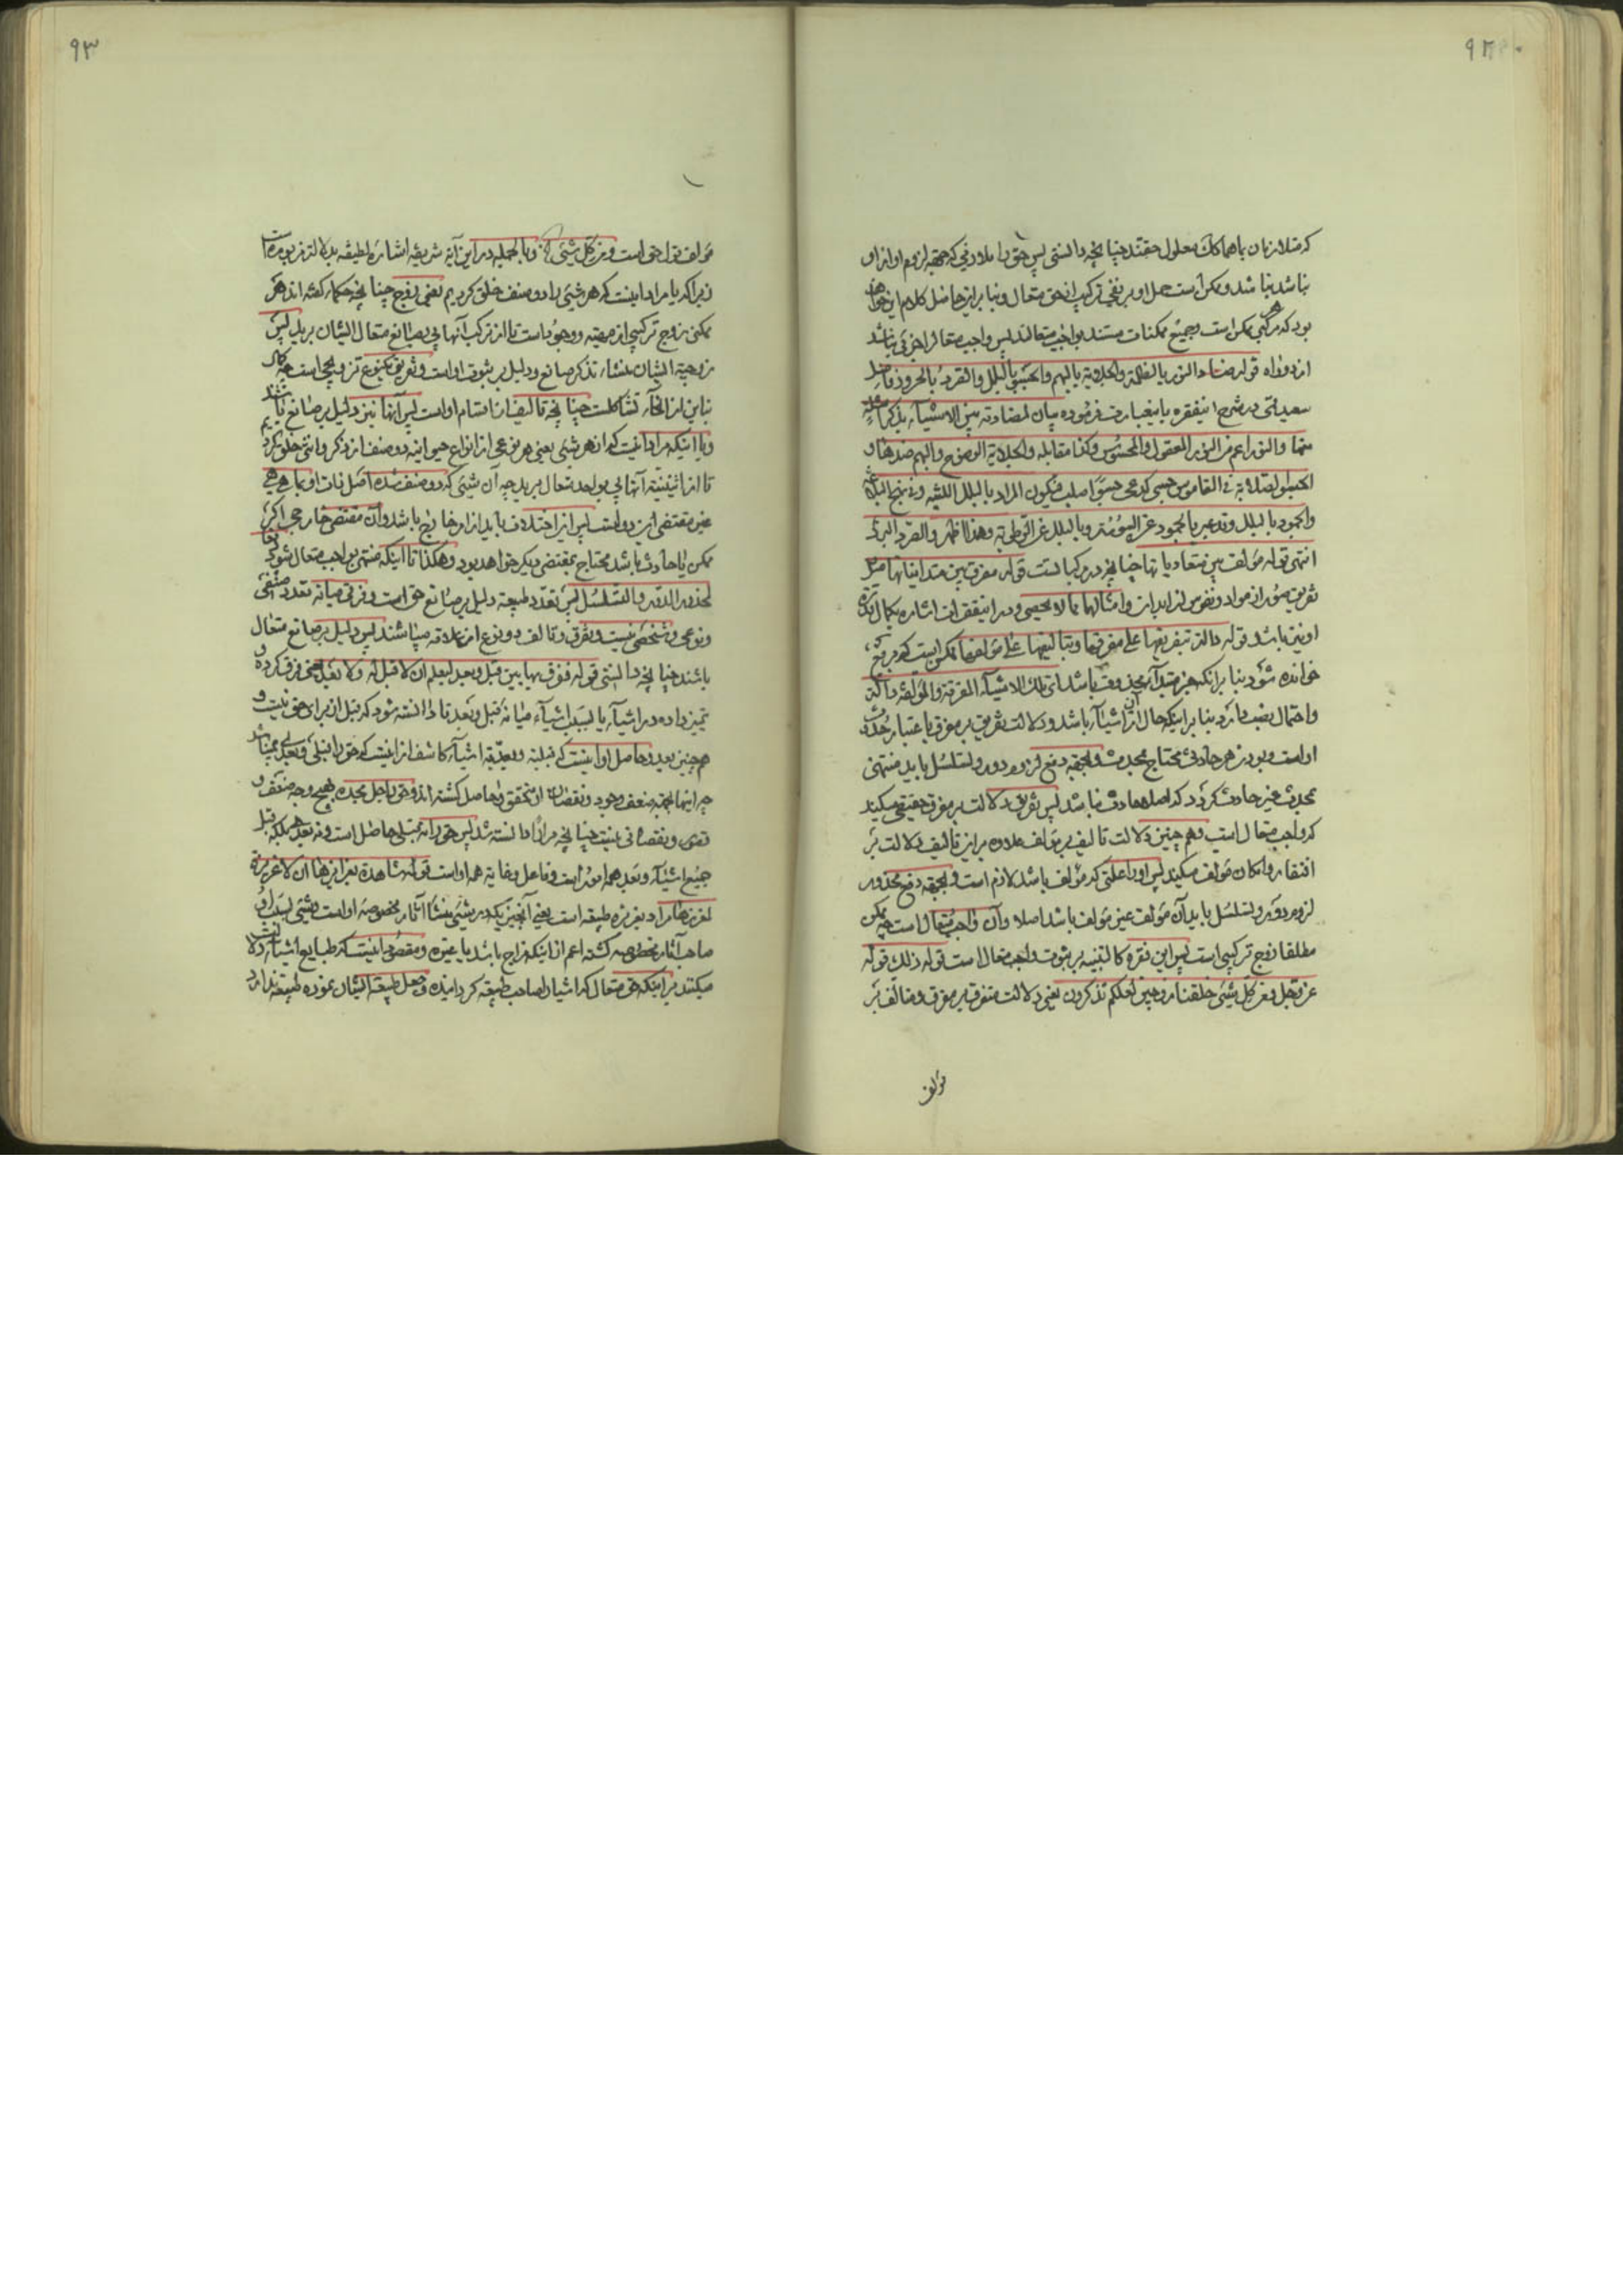 که مثلا زمان باهما کک معلول حقند چنانچه دانستی پس حق را بلاد فی که جهة لزوم او از او
نباشد نباشد و ممکن است حمل او بر نفی ترکیب از حق متعال و بنا براین حاصل کلام این خواهد
بود که هر مرکبی ممکن است و جمیع ممکنات مستند بواجب متعالند پس واجب متعال را جزئی نباشد
از دو راه قوله ضاد النور بالظلمة والجلایة بالبهم والجسو بالبلل والصرد بالحرور فاضل
سعید قمی در شرح اینفقره باینعبارت فرموده بیان لمضادته بین الاشیاء بذکر امثلة
منها والنور اعم من النور المعقول والمحسوس وکذا مقابله والجلایة الوضوح والبهم ضدها و
الجسو الصلابة فی القاموس جسی کدعی جسوا صلب فیکون المراد بالبلل اللینة و فی نهج البلاغة
والجمود بالبلل وقد عبر بالجمود عن الیبوسة وبالبلل عن الرطوبة وهذا اظهر والصرد البرد
انتهی قوله مؤلف بین متعادیاتها چنانچه در مرکباتست قوله مفرق بین متدانیاتها مثل
تفریق صور از مواد و نفوس از ابدان وامثالهما مما لا یحصی و در اینفقرات اشاره بکمال قدرت
او نیز باشد قوله دالة بتفریقها علی مفرقها وبتالیفها علی مؤلفها ممکن است که مرفوع
خوانده شود بنا برانکه خبر مبتدای محذوف باشد ای تلک الاشیاء المفرقة والمؤلفة دالة
واحتمال نصب دارد بنا براینکه حال از ان اشیاء باشد ودلالت تفریق بر مفرق باعتبار حدوث
اوست و بودن هر حادثی محتاج بمحدث و بجهة دفع لزوم دور و تسلسل باید منتهی
بمحدث غیر حادث گردد که اصلا حادث نباشد پس تفریق دلالت بر مفرق حقیقی میکند
که واجب متعال است وهم چنین دلالت تالیف بر مؤلف علاوه براین تالیف دلالت بر
افتقار و امکان مؤلف میکند پس او را علتی که مؤلف باشد لازم است و بجهة دفع محذور
لزوم دور و تسلسل باید آن مؤلف غیر مؤلف باشد اصلا وآن واجب متعال است چه ممکن
مطلقا زوج ترکیبی است پس این فقره کالتنبیه بر ثبوت واجب متعال است قوله ذلک قوله
عز وجل ومن کل شیئی خلقنا زوجین لعلکم تذکرون یعنی دلالت متفرق بر مفرق و متالف بر
مؤلف
۹۳
مؤلف قول حق است ومن کل شیئی الخ وبالجمله در این آیه شریفه اشاره لطیفه بدلالت مزبوره است
زیرا که یا مراد اینست که هر شیئی را دو صنف خلق کردیم یعنی زوج چنانچه حکما گفته اند هر
ممکنی زوج ترکیبی از مهیة و وجود است تا از ترکیب آنها پی بصانع متعال ایشان برید پس
زوجیة ایشان منشاء تذکر صانع و دلیل بر ثبوت اوست وتفریق بنوع تزویجی است چه کل
بنابراین از انحاء تشاکلست چنانچه تالیف از اقسام اوست پس آنها نیز دلیل بر صانع باشند
ویا اینکه مراد اینست که از هر شیئی یعنی هر نوعی از انواع حیوانیه دو صنف از ذکر وانثی خلق کردیم
تا از اثنینیة آنها پی بواحد متعال برید چه آن شیئی که دو صنف شده اصل ذات او بما هی هی
غیر مقتضی این دو است پس این اختلاف باید از امر خارج باشد وآن مقتضی خارجی اگر
ممکن یا حادث باشد محتاج بمقتضی دیگر خواهد بود وهکذا تا اینکه منتهی بواجب متعال شود دفعا
لمحذور الدور والتسلسل پس تعدد طبیعة دلیل بر صانع حق است و فرقی میانه تعدد صنفی
ونوعی وشخصی نیست وتفرق وتالف دو نوع از علاقه میباشند پس دلیل بر صانع متعال
باشند چنانچه دانستی قوله ففرق بها بین قبل وبعد لیعلم ان لا قبل له ولا بعد یعنی فرق کرده و
تمیز داده در اشیاء یا بسبب اشیاء میانه قبل وبعد تا دانسته شود که قبل از برای حق نیست و
هم چنین بعد وحاصل او اینست که قبلیة وبعدیة اشیاء کاشف از اینست که حق را قبلی وبعدی نمیباشد
چه اینها بجهة ضعف وجود ونقصان او متحقق وحاصل گشته اند وحق را جل مجده بهیچ وجه ضعف و
قصوری ونقصانی نیست چنانچه مرارا دانسته شد پس حق را نه قبلی حاصل است ونه بعد بلکه قبل
جمیع اشیاء وبعد همه امور است وفاعل وغایة همه اوست قوله شاهدة بغرایزها ان لا غریزة
لمغرزها مراد بغریزه طبیعة است یعنی آنچیزیکه در شیئی منشاء آثار مخصوصه اوست وشیئی بسبب او
صاحب آثار مخصوصه گشته اعم از اینکه مزاج باشد یا غیره ومقصود اینست که طبایع اشیاء دلالت
میکنند براینکه حق متعال که اشیاء را صاحب طبیعة گردانیده وجعل طبیعة ایشان نموده طبیعة ندارد